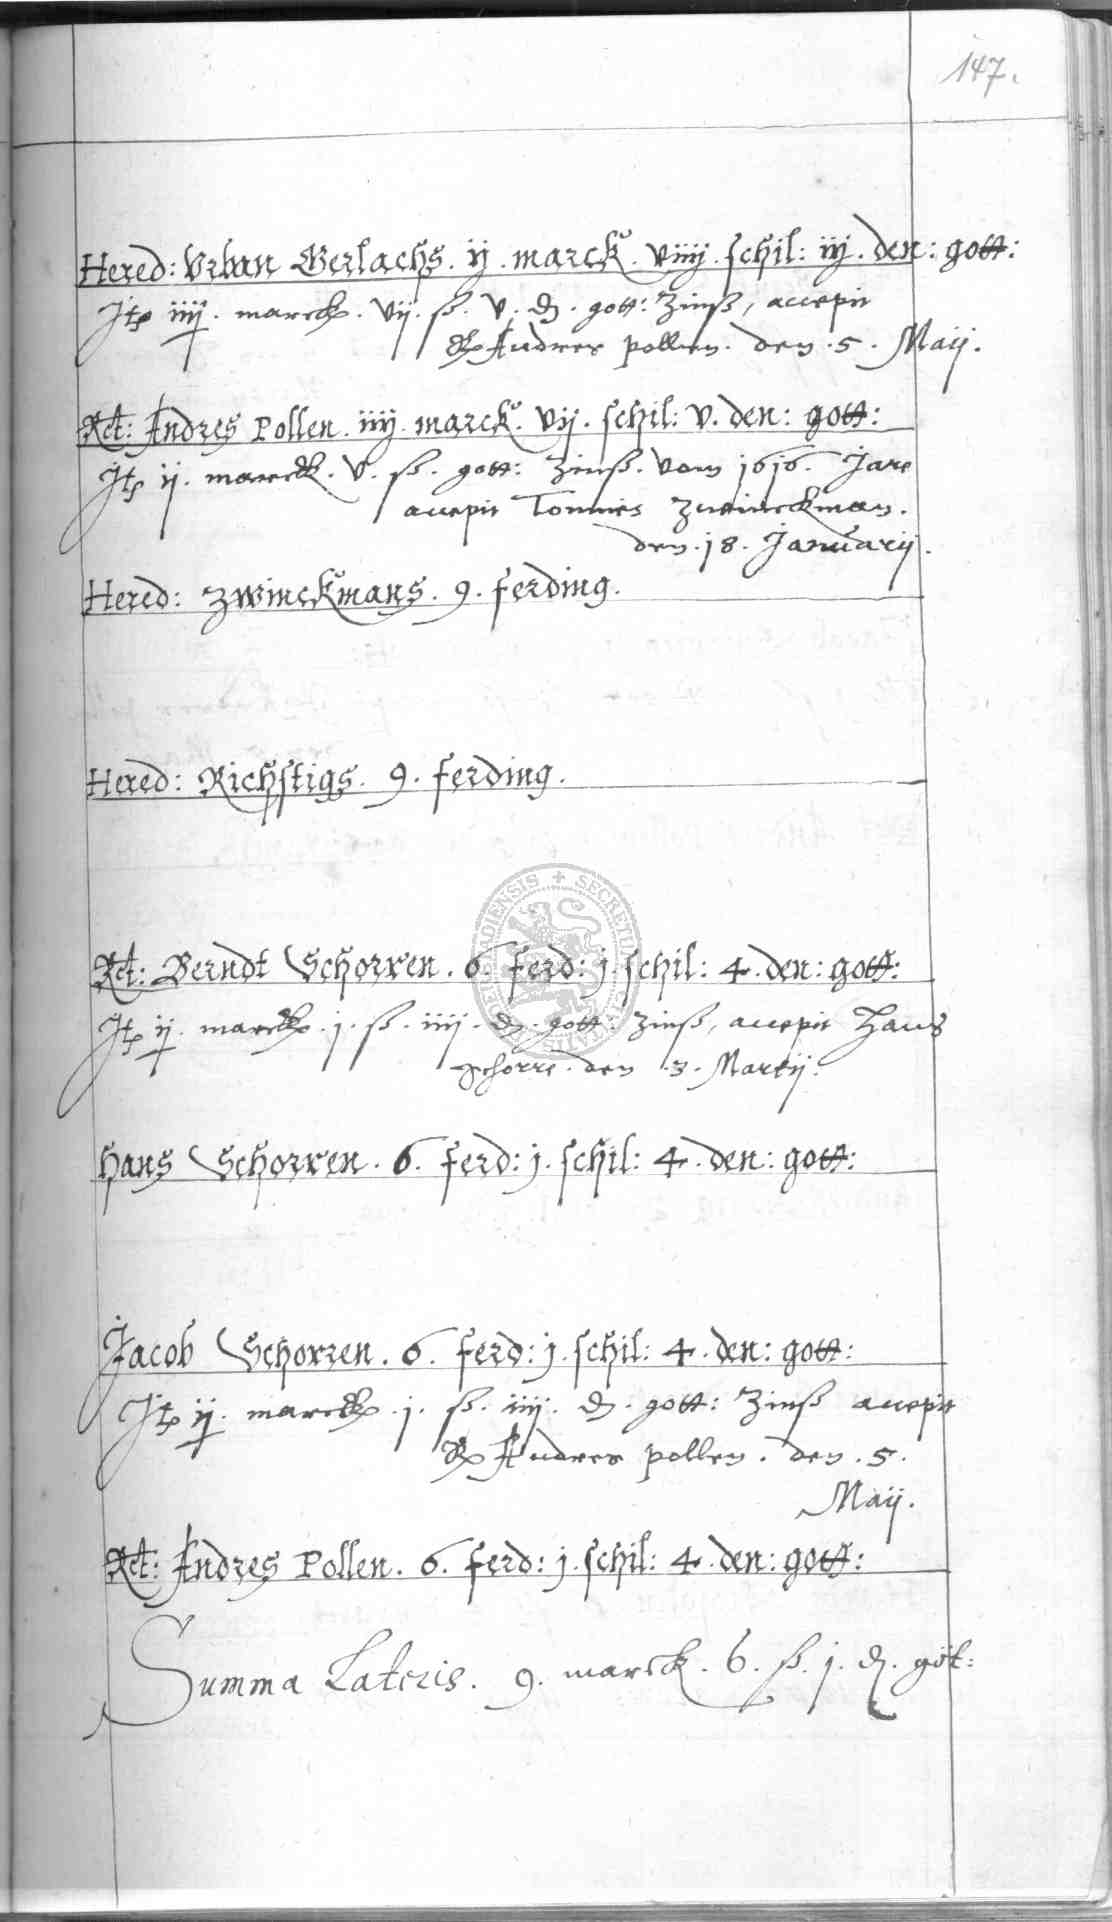 147.
Hered: Vrban Gerlachs. ij. marck. viiij. schil: iij. den: gott:
It iiij. marck. vij. ß. v. d. gott: Zinß, accepit
Andres pollen. den. 5. Maij.
Rct: Andres Pollen. iiij. marck. vij. schil: v. den: gott:
It ij. marck. v. ß. gott: Zinß. vom 1616. Jare
accepit Tonnies Zwinckman.
den. 18. Januarij.
Hered: Zwinckmans. 9. ferding.
Hered: Richstigs. 9. ferding.
SECRETUM CIVITATIS
Rct: Berndt Schorren. 6. ferd: j. schil: 4. den: gott:
It ij. marck. j. ß. iiij. d. gott: Zinß, accepit Hans
Schorre. den. 3. Martij.
Hans Schorren. 6. ferd: j. schil: 4. den: gott:
Jacob Schorren. 6. ferd: j. schil: 4. den: gott:
It ij. marck. j. ß. iiij. d. gott: Zinß accepit
Andres pollen. den. 5.
Maij.
Rct: Andres Pollen. 6. ferd: j. schil: 4. den: gott:
Summa Lateris. 9. marck. 6. ß. j. d. got: